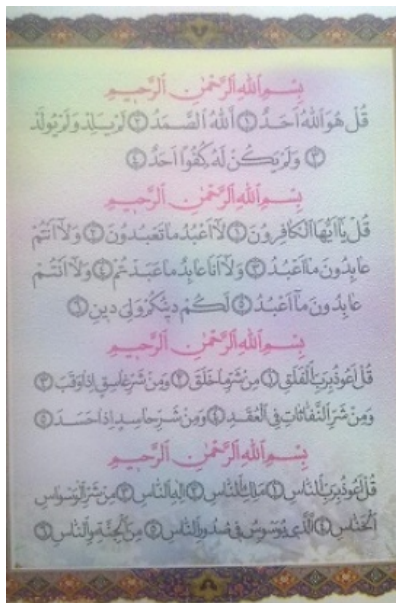 ٧
بِسْمِ اللّٰهِ الرَّحْمٰنِ الرَّحِيمِ
قُلْ هُوَ اللّٰهُ اَحَدٌ ١ اَللّٰهُ الصَّمَدُ ٢ لَمْ يَلِدْ وَلَمْ يُولَدْ
٣ وَلَمْ يَكُنْ لَهُ كُفُوًا اَحَدٌ ٤
بِسْمِ اللّٰهِ الرَّحْمٰنِ الرَّحِيمِ
قُلْ يَا اَيُّهَا الْكَافِرُونَ ١ لَا اَعْبُدُ مَا تَعْبُدُونَ ٢ وَلَا اَنْتُمْ
عَابِدُونَ مَا اَعْبُدُ ٣ وَلَا اَنَا عَابِدٌ مَا عَبَدْتُمْ ٤ وَلَا اَنْتُمْ
عَابِدُونَ مَا اَعْبُدُ ٥ لَكُمْ دِينُكُمْ وَلِيَ دِينِ ٦
بِسْمِ اللّٰهِ الرَّحْمٰنِ الرَّحِيمِ
قُلْ اَعُوذُ بِرَبِّ الْفَلَقِ ١ مِنْ شَرِّ مَا خَلَقَ ٢ وَمِنْ شَرِّ غَاسِقٍ اِذَا وَقَبَ ٣
وَمِنْ شَرِّ النَّفَّاثَاتِ فِي الْعُقَدِ ٤ وَمِنْ شَرِّ حَاسِدٍ اِذَا حَسَدَ ٥
بِسْمِ اللّٰهِ الرَّحْمٰنِ الرَّحِيمِ
قُلْ اَعُوذُ بِرَبِّ النَّاسِ ١ مَلِكِ النَّاسِ ٢ اِلٰهِ النَّاسِ ٣ مِنْ شَرِّ الْوَسْوَاسِ
الْخَنَّاسِ ٤ اَلَّذِي يُوَسْوِسُ فِي صُدُورِ النَّاسِ ٥ مِنَ الْجِنَّةِ وَالنَّاسِ ٦
٨